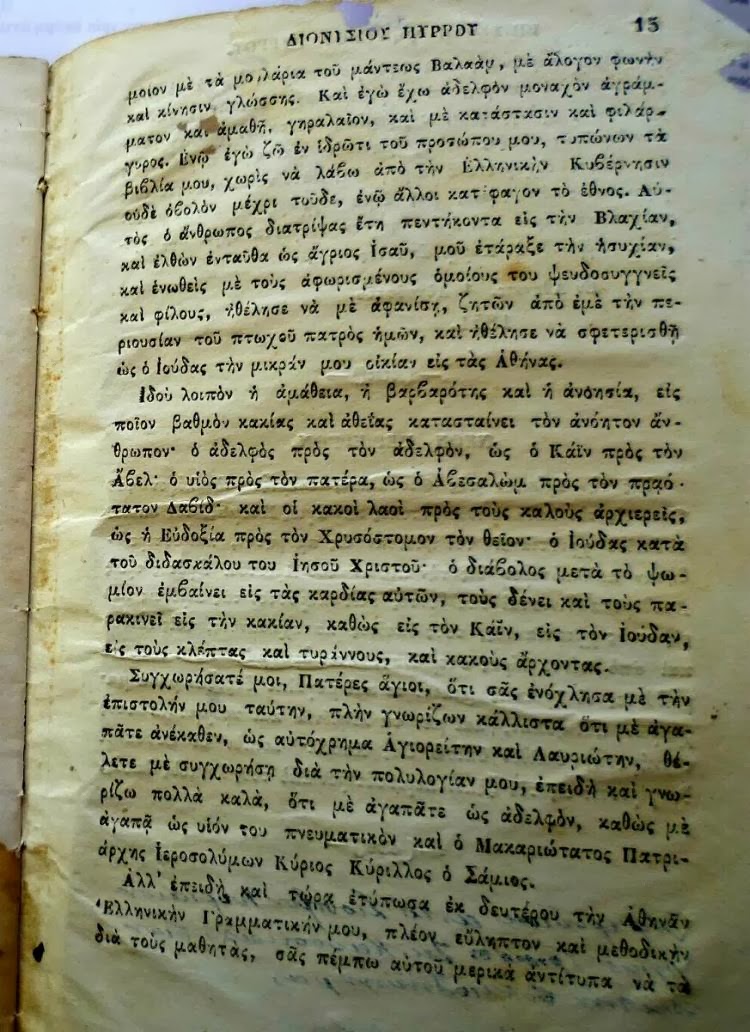 ΔΙΟΝΥΣΙΟΥ ΠΥΡΡΟΥ 15
μοιον μὲ τὰ μουλάρια τοῦ μάντεως Βαλαὰμ, μὲ ἄλογον φωνὴν
καὶ κίνησιν γλώσσης. Καὶ ἐγὼ ἔχω ἀδελφὸν μοναχὸν ἀγράμ-
ματον καὶ ἀμαθῆ, γηραλαῖον, καὶ μὲ κατάστασιν καὶ φιλάρ-
γυρος. Ἐνῷ ἐγὼ ζῶ ἐν ἱδρῶτι τοῦ προσώπου μου, τυπώνων τὰ
βιβλία μου, χωρὶς νὰ λάβω ἀπὸ τὴν Ἑλληνικὴν Κυβέρνησιν
οὐδὲ ὀβολὸν μέχρι τοῦδε, ἐνῷ ἄλλοι κατέφαγον τὸ ἔθνος. Αὐ-
τὸς ὁ ἄνθρωπος διατρίψας ἔτη πεντήκοντα εἰς τὴν Βλαχίαν,
καὶ ἐλθὼν ἐνταῦθα ὡς ἄγριος Ἰσαῦ, μοῦ ἐτάραξε τὴν ἡσυχίαν,
καὶ ἑνωθεὶς μὲ τοὺς ἀφωρισμένους ὁμοίους του ψευδοσυγγνεῖς
καὶ φίλους, ἠθέλησε νὰ μὲ ἀφανίσῃ, ζητῶν ἀπὸ ἐμὲ τὴν πε-
ριουσίαν τοῦ πτωχοῦ πατρὸς ἡμῶν, καὶ ἠθέλησε νὰ σφετερισθῇ
ὡς ὁ Ἰούδας τὴν μικράν μου οἰκίαν εἰς τὰς Ἀθήνας.
Ἰδοὺ λοιπὸν ἡ ἀμάθεια, ἡ βαρβαρότης καὶ ἡ ἀνοησία, εἰς
ποῖον βαθμὸν κακίας καὶ ἀθεΐας κατασταίνει τὸν ἀνόητον ἄν-
θρωπον· ὁ ἀδελφὸς πρὸς τὸν ἀδελφὸν, ὡς ὁ Κάϊν πρὸς τὸν
Ἄβελ· ὁ υἱὸς πρὸς τὸν πατέρα, ὡς ὁ Ἀβεσαλὼμ πρὸς τὸν πραό-
τατον Δαβίδ· καὶ οἱ κακοὶ λαοὶ πρὸς τοὺς καλοὺς ἀρχιερεῖς,
ὡς ἡ Εὐδοξία πρὸς τὸν Χρυσόστομον τὸν θεῖον· ὁ Ἰούδας κατὰ
τοῦ διδασκάλου του Ἰησοῦ Χριστοῦ· ὁ διάβολος μετὰ τὸ ψω-
μίον ἐμβαίνει εἰς τὰς καρδίας αὐτῶν, τοὺς δένει καὶ τοὺς πα-
ρακινεῖ εἰς τὴν κακίαν, καθὼς εἰς τὸν Κάϊν, εἰς τὸν Ἰούδαν,
εἰς τοὺς κλέπτας καὶ τυράννους, καὶ κακοὺς ἄρχοντας.
Συγχωρήσατέ μοι, Πατέρες ἅγιοι, ὅτι σᾶς ἐνόχλησα μὲ τὴν
ἐπιστολήν μου ταύτην, πλὴν γνωρίζων κάλλιστα ὅτι μὲ ἀγα-
πᾶτε ἀνέκαθεν, ὡς αὐτόχρημα Ἁγιορείτην καὶ Λαυριώτην, θέ-
λετε μὲ συγχωρήσῃ διὰ τὴν πολυλογίαν μου, ἐπειδὴ καὶ γνω-
ρίζω πολλὰ καλὰ, ὅτι μὲ ἀγαπᾶτε ὡς ἀδελφὸν, καθὼς μὲ
ἀγαπᾷ ὡς υἱόν του πνευματικὸν καὶ ὁ Μακαριώτατος Πατρι-
άρχης Ἱεροσολύμων Κύριος Κύριλλος ὁ Σάμιος.
Ἀλλ' ἐπειδὴ καὶ τώρα ἐτύπωσα ἐκ δευτέρου τὴν Ἀθηνᾶν
Ἑλληνικὴν Γραμματικήν μου, πλέον εὔληπτον καὶ μεθοδικὴν
διὰ τοὺς μαθητὰς, σᾶς πέμπω αὐτοῦ μερικὰ ἀντίτυπα νὰ τὰ